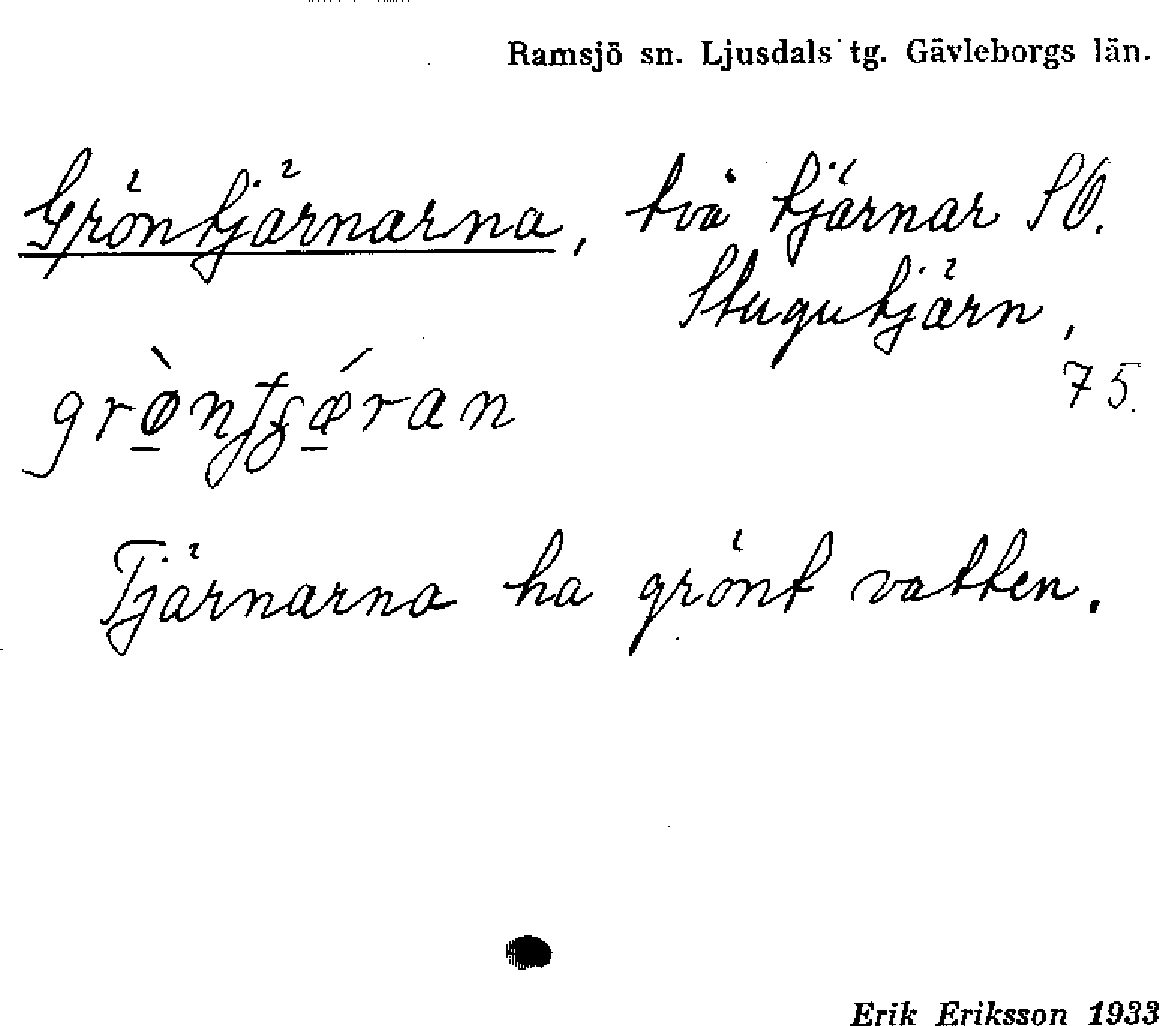 Ramsjö sn. Ljusdals tg. Gävleborgs län.
Gröntjärnarna, två tjärnar SO.
Stugutjärn,
75.
Tjärnarna ha grönt vatten.
Erik Eriksson 1933